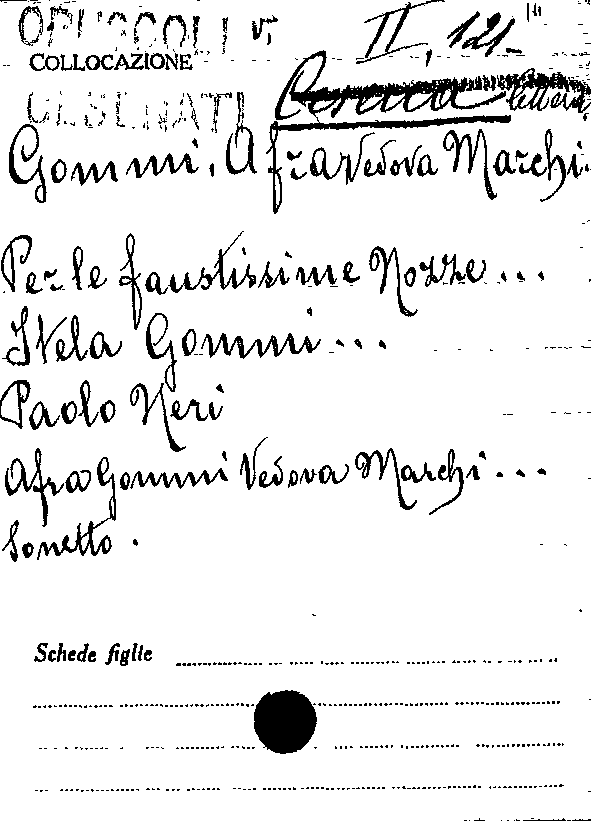 OPUSCOLI V, II, 121.
COLLOCAZIONE
CESENATI Cesena
Gommi, Afra Vedova Marchi.
Per le faustissime Nozze...
Itela Gommi...
Paolo Neri
Afra Gommi Vedova Marchi...
Sonetto.
Schede figlie